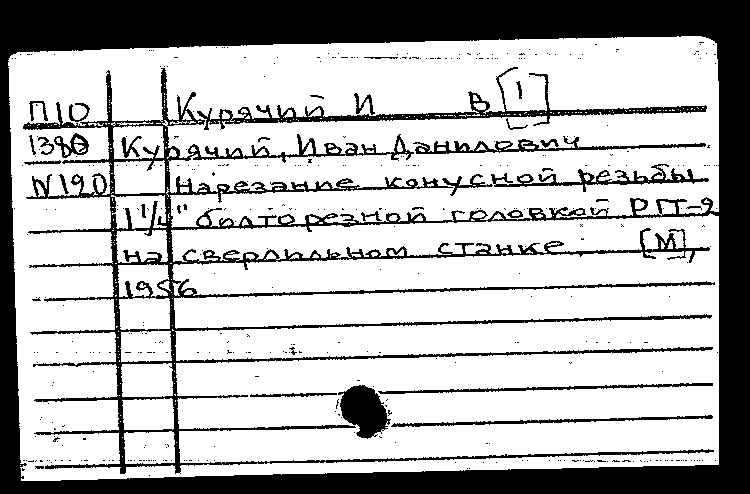 П10 Курячий И В [1]
1380 Курячий, Иван Данилович
N120 Нарезание конусной резьбы
1 1/4" болторезной головкой РГТ-2
на сверлильном станке. [М],
1956